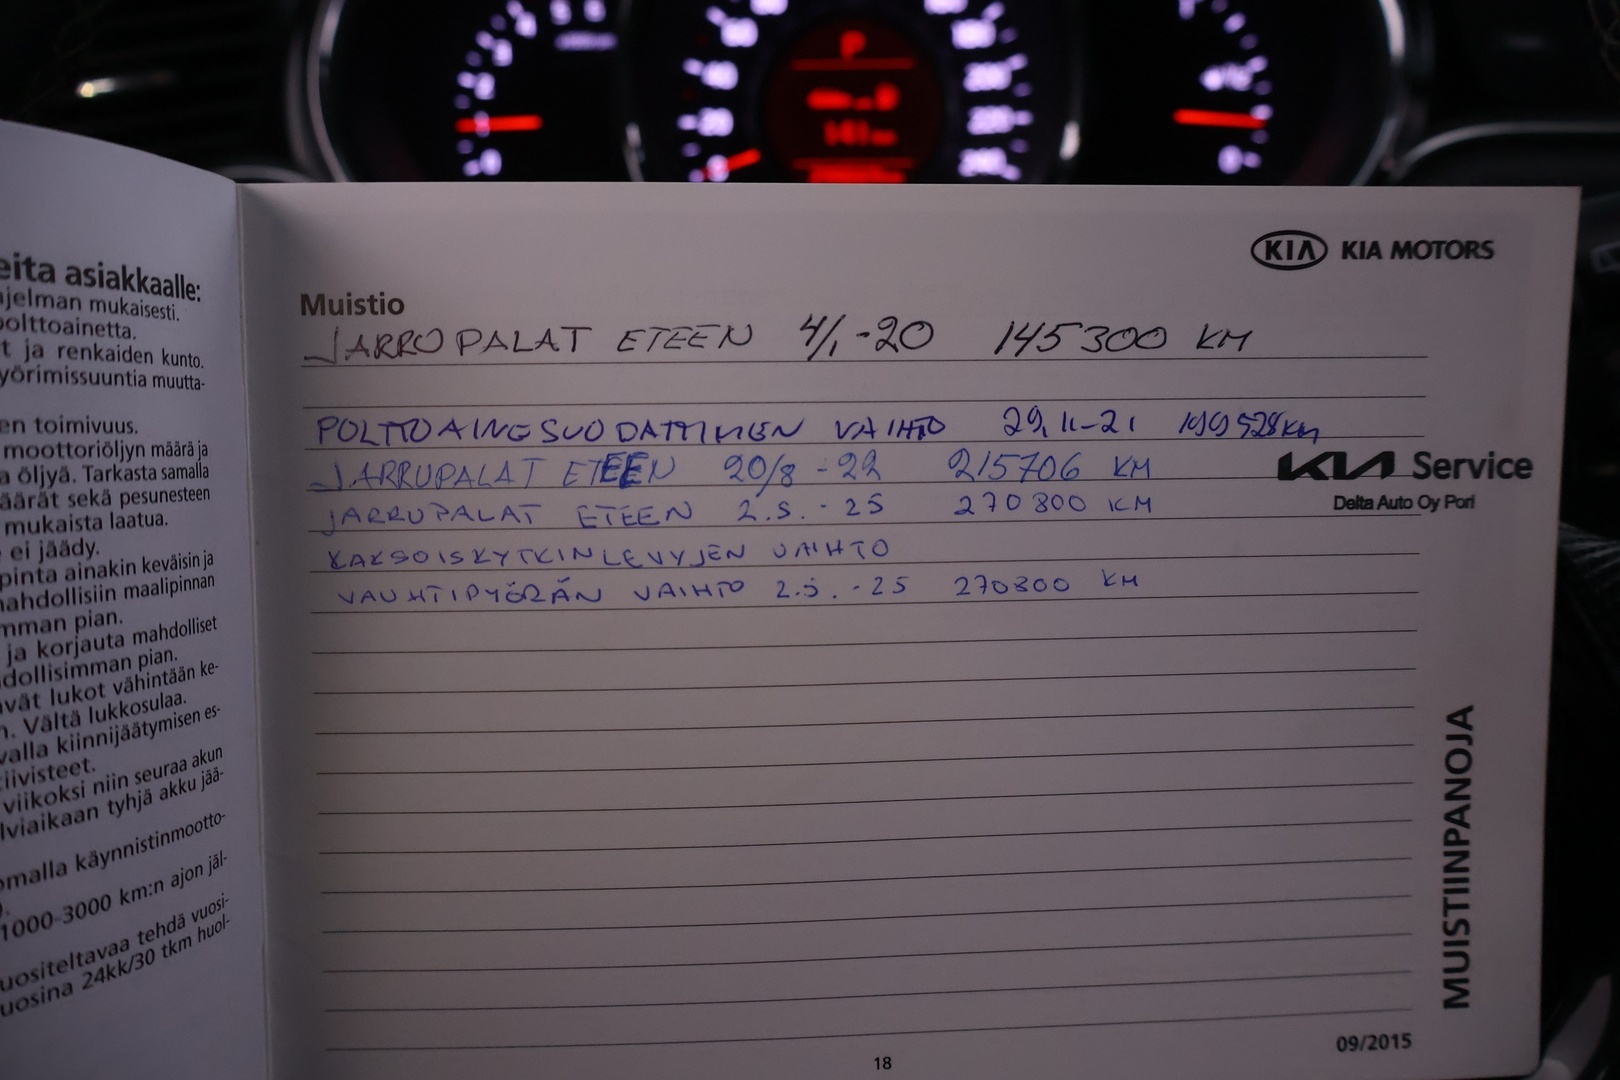 eita asiakkaalle:
jelman mukaisesti.
olttoainetta.
t ja renkaiden kunto.
yörimissuuntia muutta-
en toimivuus.
moottoriöljyn määrä ja
a öljyä. Tarkasta samalla
äärät sekä pesunesteen
mukaista laatua.
ei jäädy.
pinta ainakin keväisin ja
mahdollisiin maalipinnan
mman pian.
ja korjauta mahdolliset
dollisimman pian.
vät lukot vähintään ke-
n. Vältä lukkosulaa.
valla kiinnijäätymisen es-
tiivisteet.
viikoksi niin seuraa akun
lviaikaan tyhjä akku jää-
omalla käynnistinmootto-
1000-3000 km:n ajon jäl-
uositeltavaa tehdä vuosi-
uosina 24kk/30 tkm huol-
KIA KIA MOTORS
Muistio
JARROPALAT ETEEN 4/1-20 145300 KM
POLTTOAINESUODATTIMEN VAIHTO 29.11-21 199528KM
JARRUPALAT ETEEN 20/8-22 215706 KM
KIA Service
Delta Auto Oy Pori
JARRUPALAT ETEEN 2.5.-25 270800 KM
KAKSOISKYTKINLEVYJEN VAIHTO
VAUHTIPYÖRÄN VAIHTO 2.5.-25 270800 KM
MUISTIINPANOJA
09/2015
18
P
20
40
0
200
220
240
0
1
2
3
0